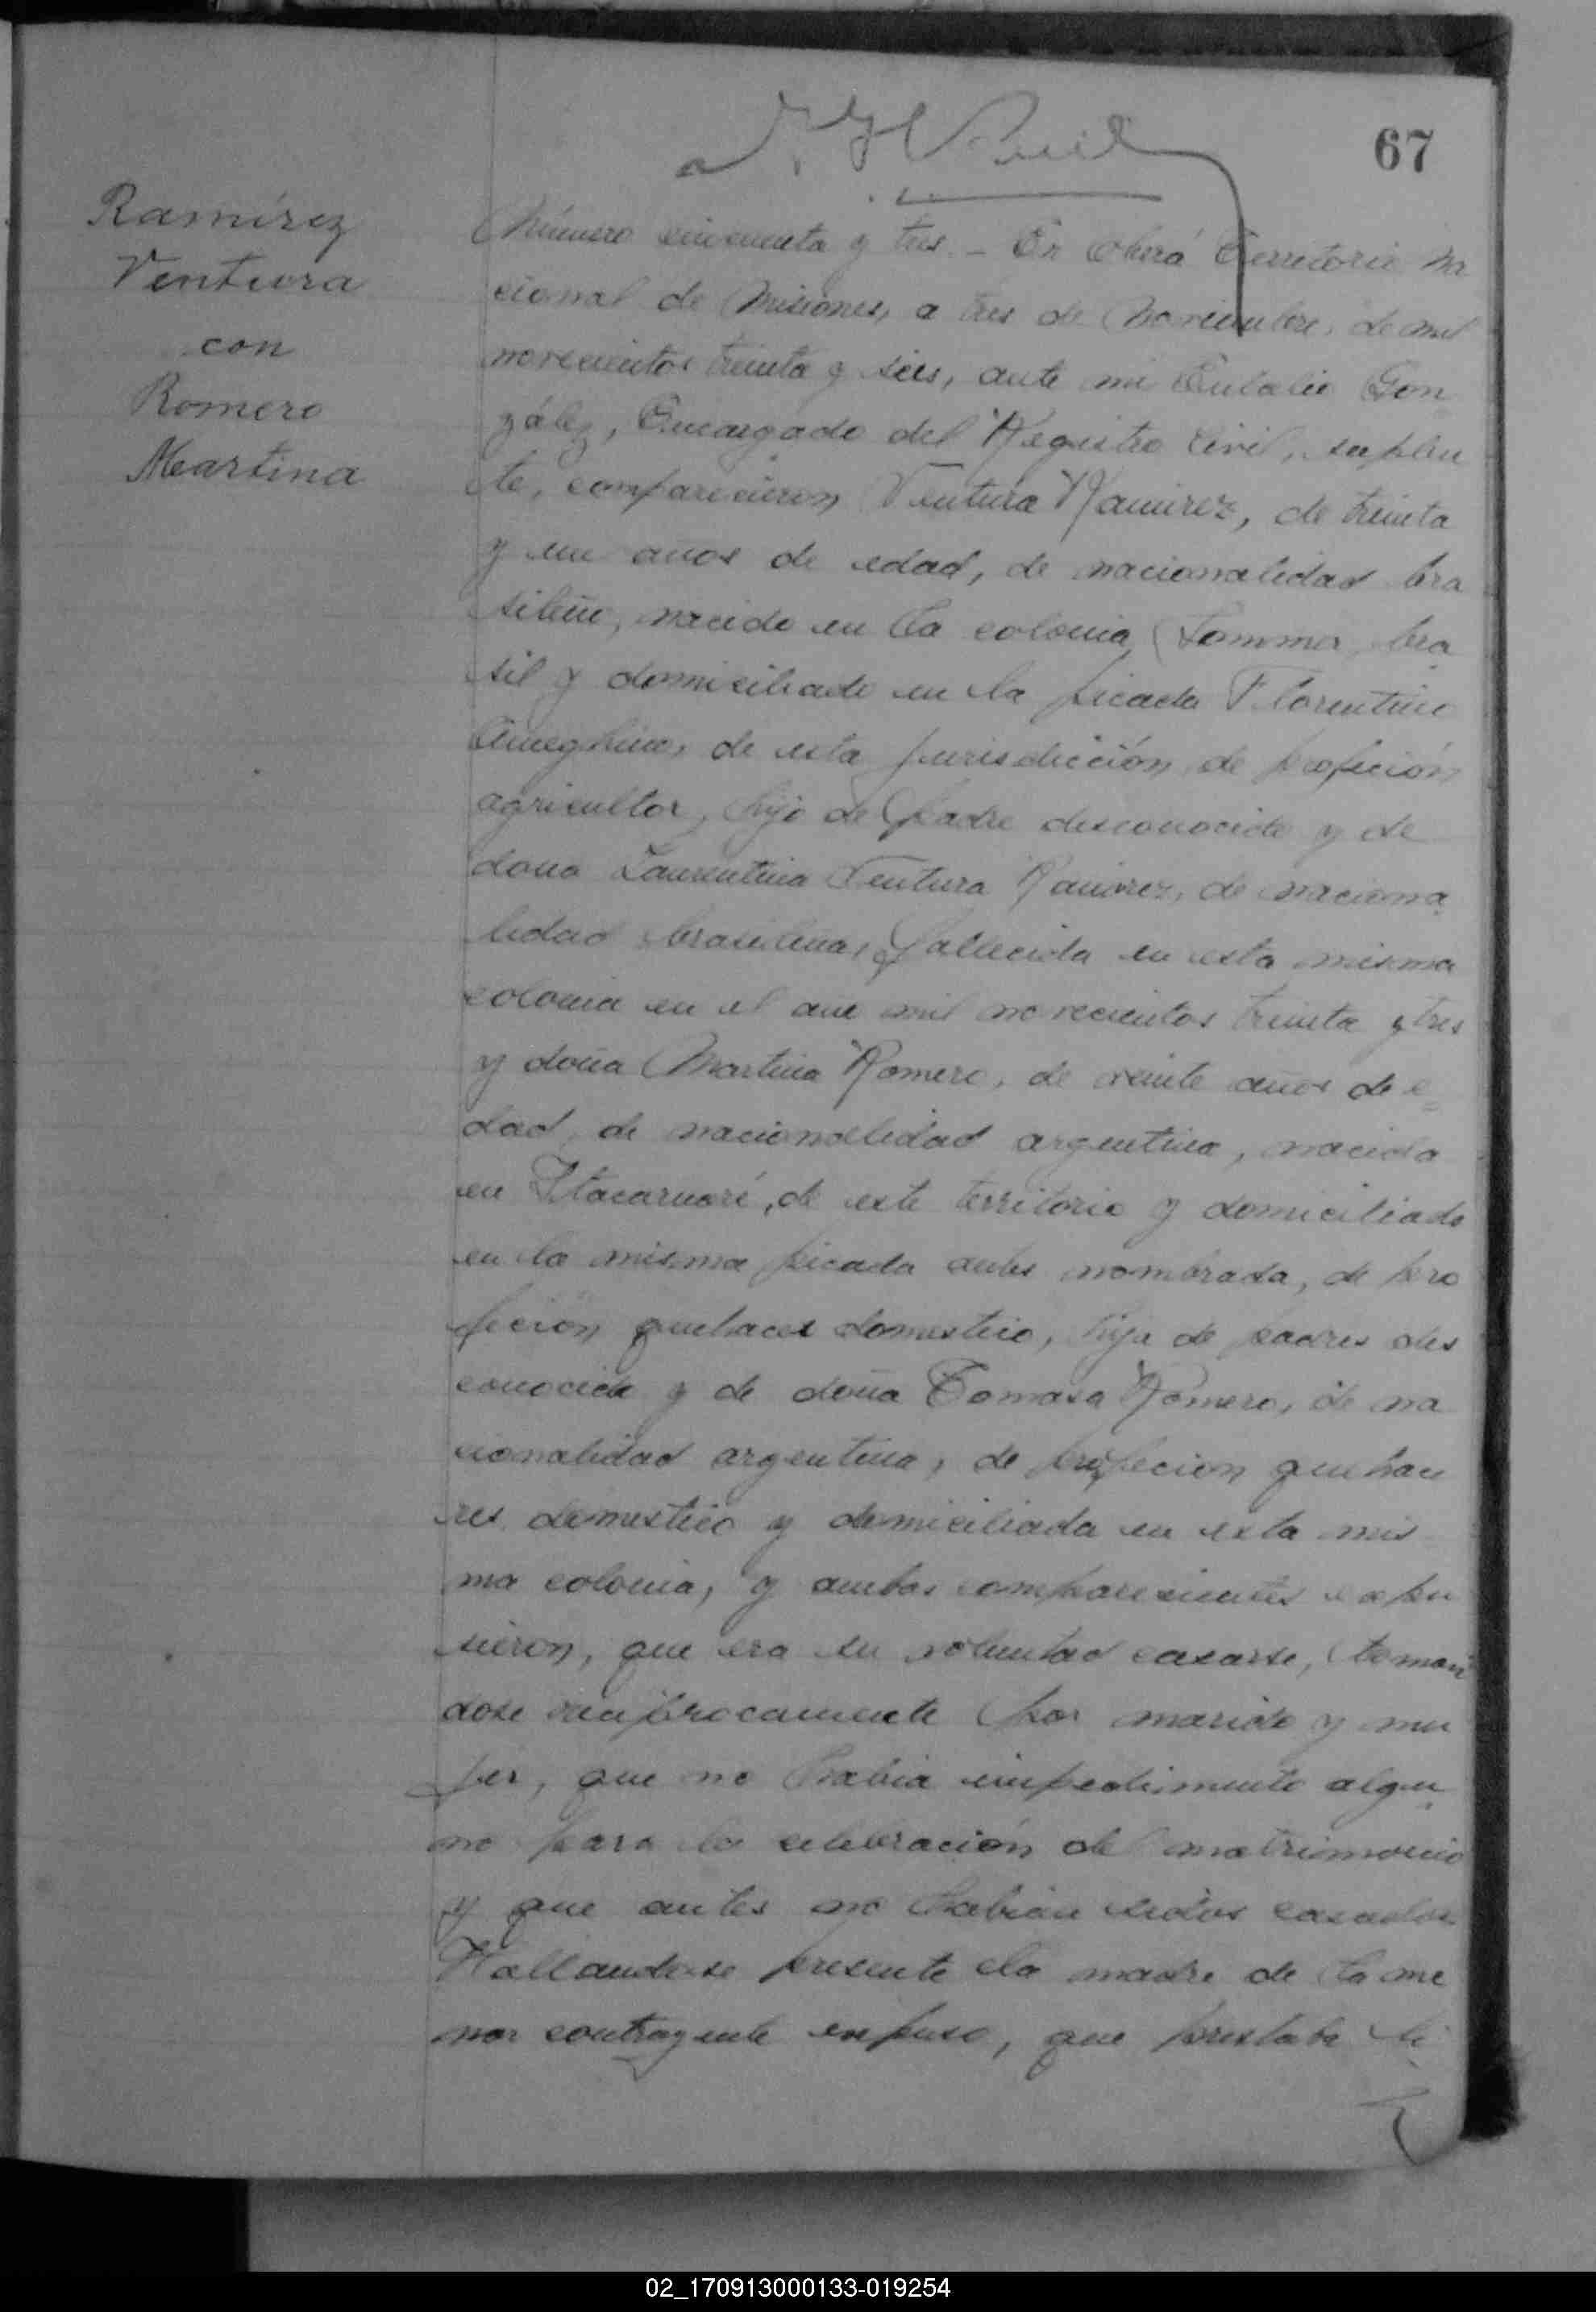 67
Ramírez
Ventura
con
Romero
Martina
Número cincuenta y tres. - En Oberá Territorio Na
cional de Misiones, a tres de Noviembre, de mil
novecientos treinta y seis, ante mi Eulalio Gon
zález, Encargado del Registro Civil, suplen
te, comparecieron Ventura Ramirez, de treinta
y un anos de edad, de nacionalidad bra
sileño, nacido en la colonia Bra
sil y domiciliado en la picada Florentino
Ameghino, de esta jurisdicción, de profeción
agricultor, hijo de padre desconocido y de
dona Laurentina Ventura Ramirez, de naciona
lidad brasileña, fallecida en esta misma
colonia en el año mil novecientos treinta y tres
y doña Martina Romero, de veinte años de e
dad, de nacionalidad argentina, nacida
en Itacaruaré, de este territorio y domiciliada
en la misma picada antes nombrada, de pro
feción quehacer domestico, hija de padres des
conocido y de doña Tomasa Romero, de na
cionalidad argentina, de profeción quehace
res domestico y domiciliada en esta mis
ma colonia, y ambos comparecientes expu
sieron, que era su voluntad casarse, toman
dose reciprocamente por marido y mu
jer, que no habia impedimento algu
no para la celebración del matrimonio
y que antes no habian sidos casados
Hallandose presente la madre de la me
nor contrayente expuso, que prestaba su
02_170913000133-019254